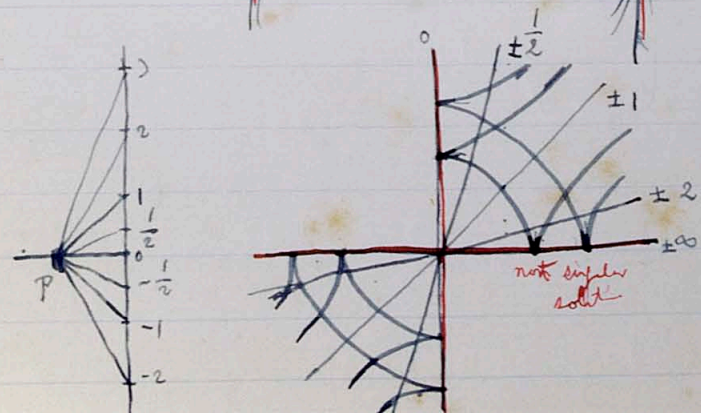 3
2
1
1/2
0
-1/2
-1
-2
P
0
±1/2
±1
±2
±∞
not singular
solut